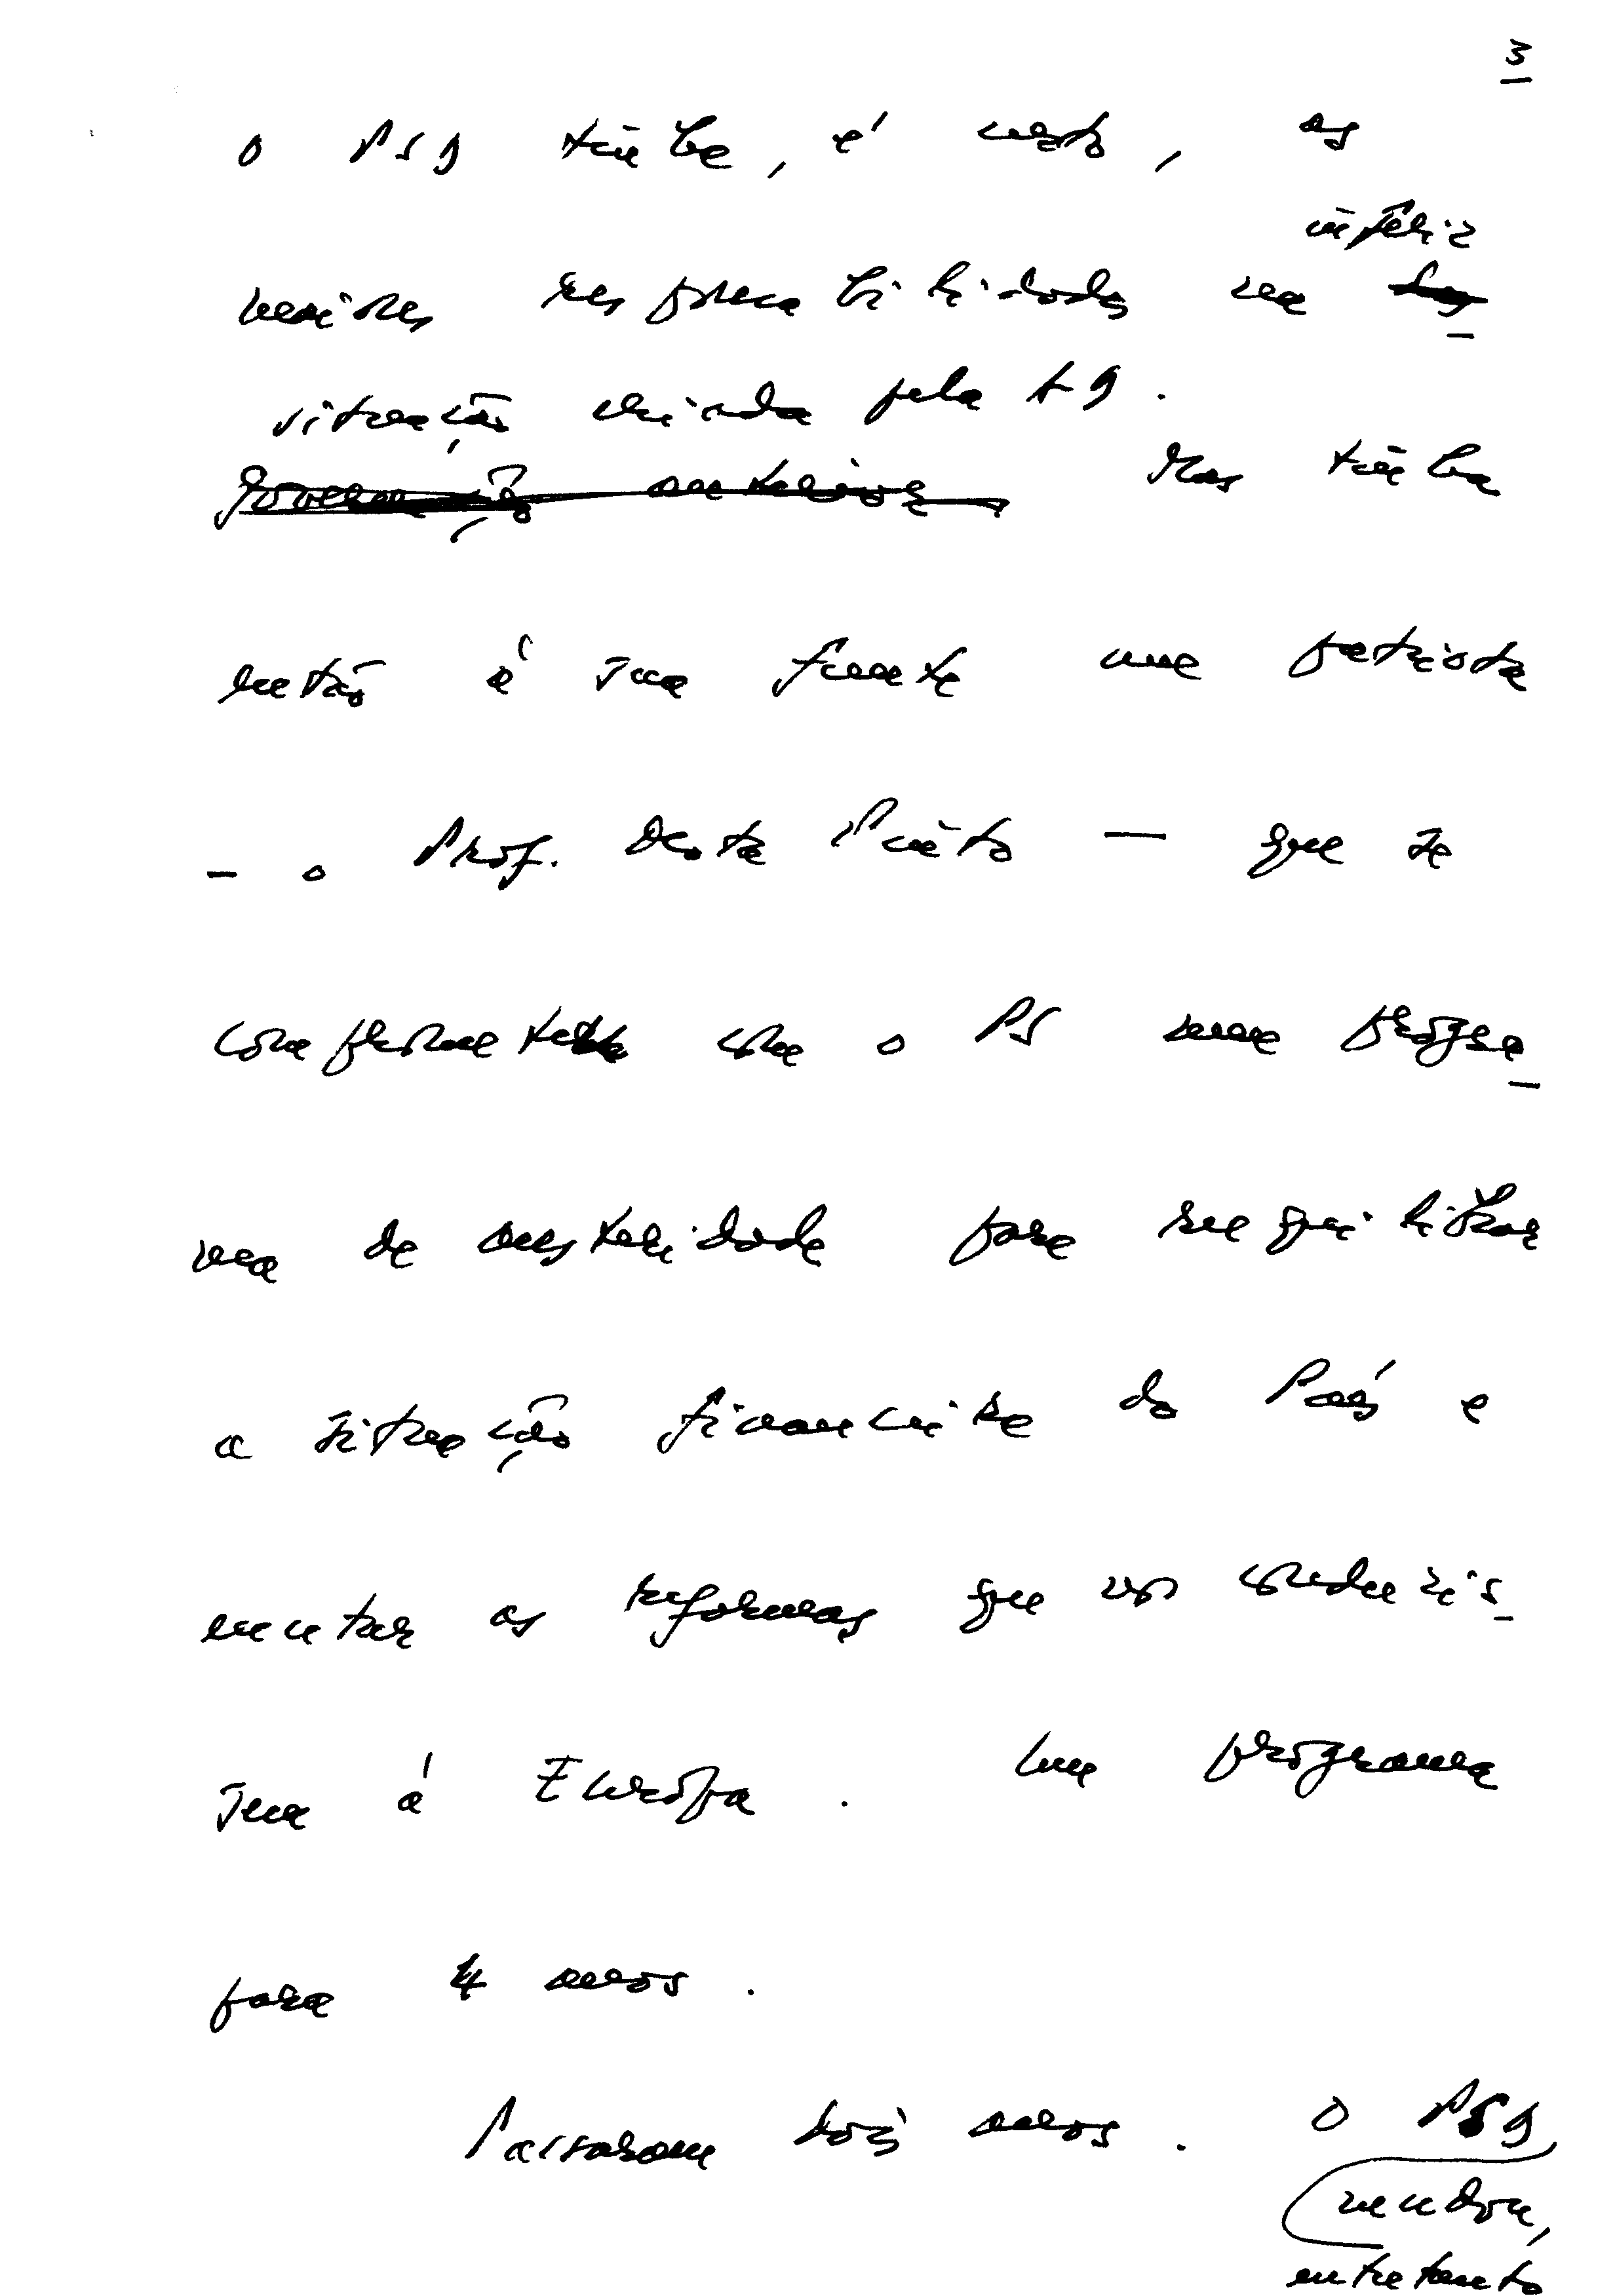 3
o PSD tinha, é certo, as
infeliz
maiores responsabilidades na
situação criada pela AD.
governação anterior Mas tinha
então à sua frente um patriota
- o Prof. Mota Pinto — que se
comprometeu com o PS num progra-
ma de austeridade para reequilibrar
a situação financeira do País e
encetar as reformas que nos conduzis-
sem à Europa. Um programa
para 4 anos.
Passaram dois anos. O PSD
mudou,
entretanto